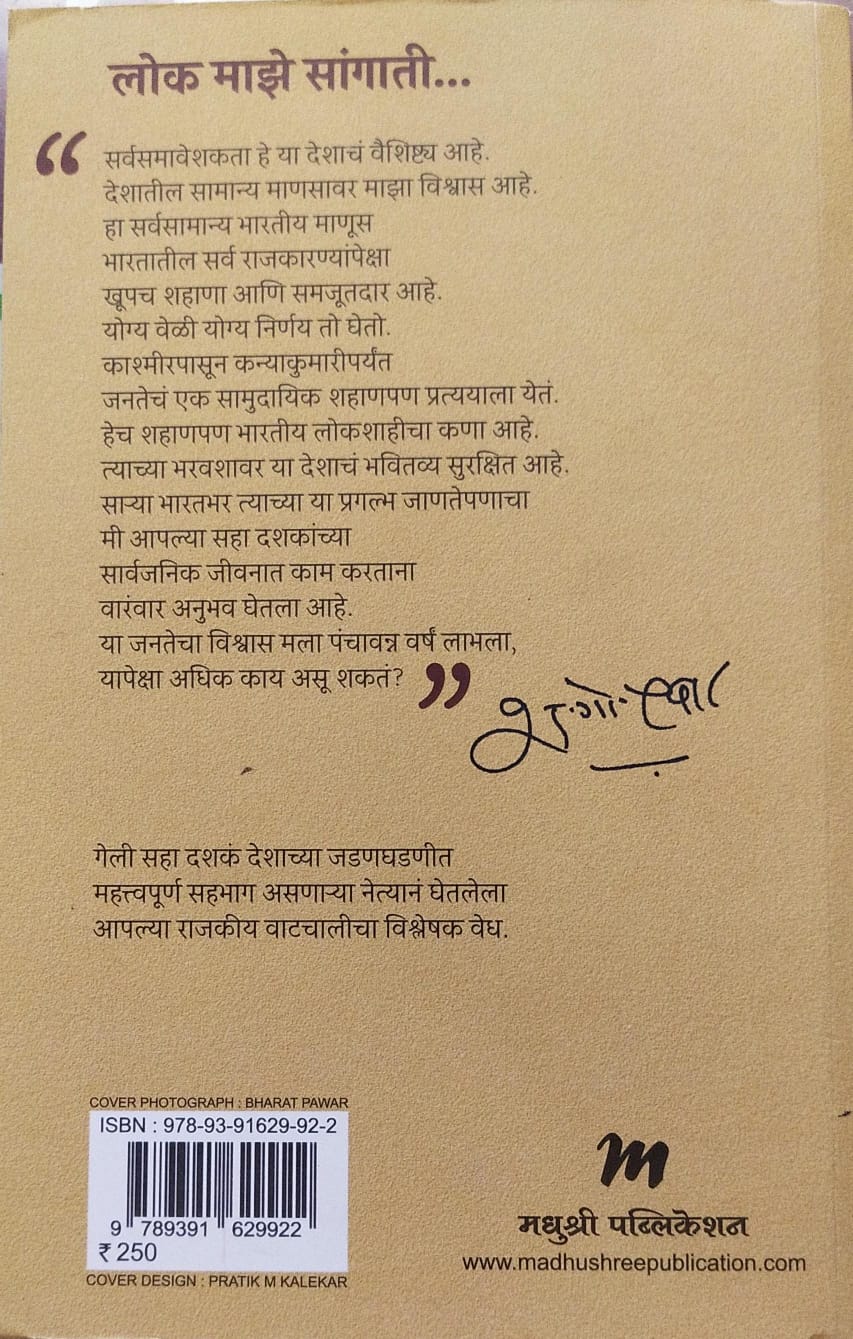 लोक माझे सांगाती...
“ सर्वसमावेशकता हे या देशाचं वैशिष्ट्य आहे.
देशातील सामान्य माणसावर माझा विश्वास आहे.
हा सर्वसामान्य भारतीय माणूस
भारतातील सर्व राजकारण्यांपेक्षा
खूपच शहाणा आणि समजूतदार आहे.
योग्य वेळी योग्य निर्णय तो घेतो.
काश्मीरपासून कन्याकुमारीपर्यंत
जनतेचं एक सामुदायिक शहाणपण प्रत्ययाला येतं.
हेच शहाणपण भारतीय लोकशाहीचा कणा आहे.
त्याच्या भरवशावर या देशाचं भवितव्य सुरक्षित आहे.
साऱ्या भारतभर त्याच्या या प्रगल्भ जाणतेपणाचा
मी आपल्या सहा दशकांच्या
सार्वजनिक जीवनात काम करताना
वारंवार अनुभव घेतला आहे.
या जनतेचा विश्वास मला पंचावन्न वर्षं लाभला,
यापेक्षा अधिक काय असू शकतं? ”
गेली सहा दशकं देशाच्या जडणघडणीत
महत्त्वपूर्ण सहभाग असणाऱ्या नेत्यानं घेतलेला
आपल्या राजकीय वाटचालीचा विश्लेषक वेध.
COVER PHOTOGRAPH : BHARAT PAWAR
ISBN : 978-93-91629-92-2
9 789391 629922
₹ 250
COVER DESIGN : PRATIK M KALEKAR
m
मधुश्री पब्लिकेशन
www.madhushreepublication.com